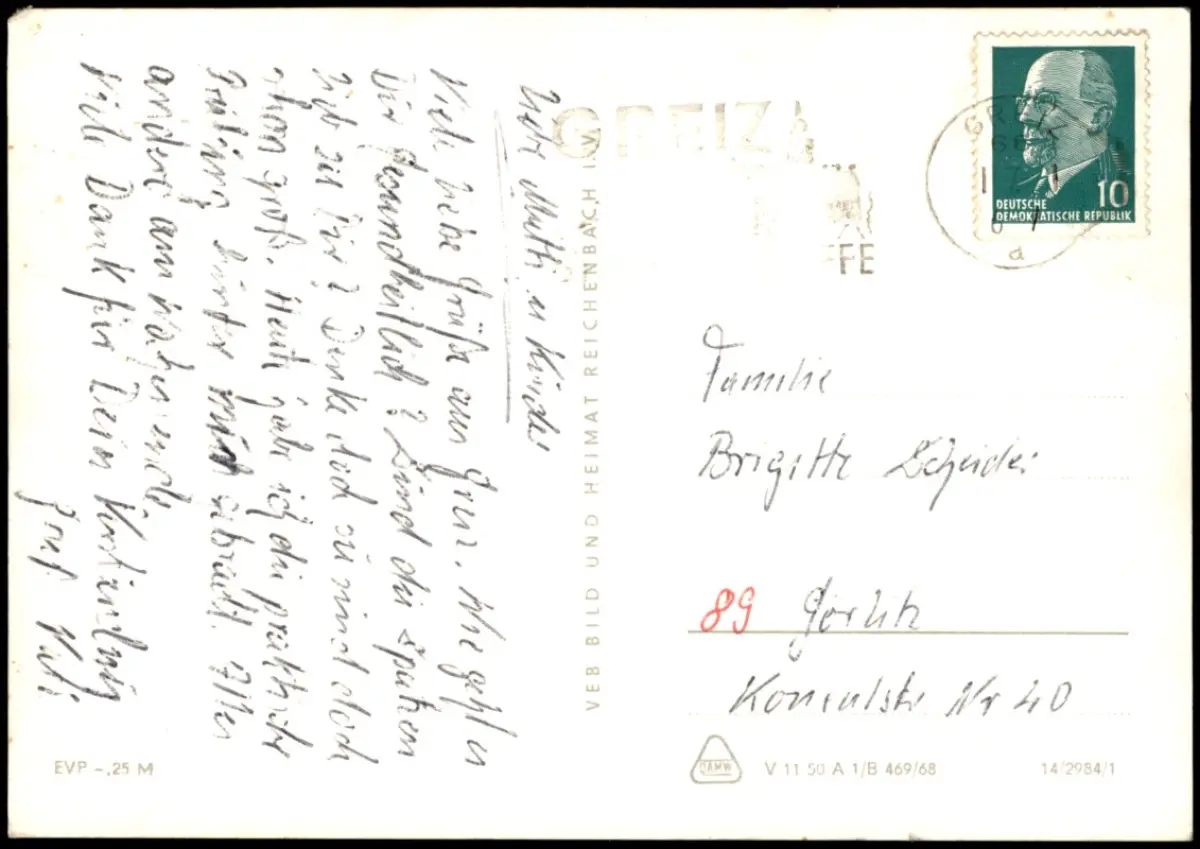 Liebe Mutti u Kinder
Viele liebe Grüße aus Greiz. Wie geht es
Dir gesundheitlich? Sind die Spatzen
lieb zu Dir? Denke doch sie sind doch
schon groß. Heute habe ich die praktische
Prüfung hinter mich gebracht. Alles
andere am
Viele Dank für Dein Verständnis
GREIZ
FFE
GREIZ
66
DEUTSCHE
DEMOKRATISCHE REPUBLIK
10
a
VEB BILD UND HEIMAT REICHENBACH I. V.
Familie
Brigitte Scheider
89 Görlitz
Konsulstr Nr 40
EVP -,25 M
DAMW
V 11 50 A 1/B 469/68
14/2984/1